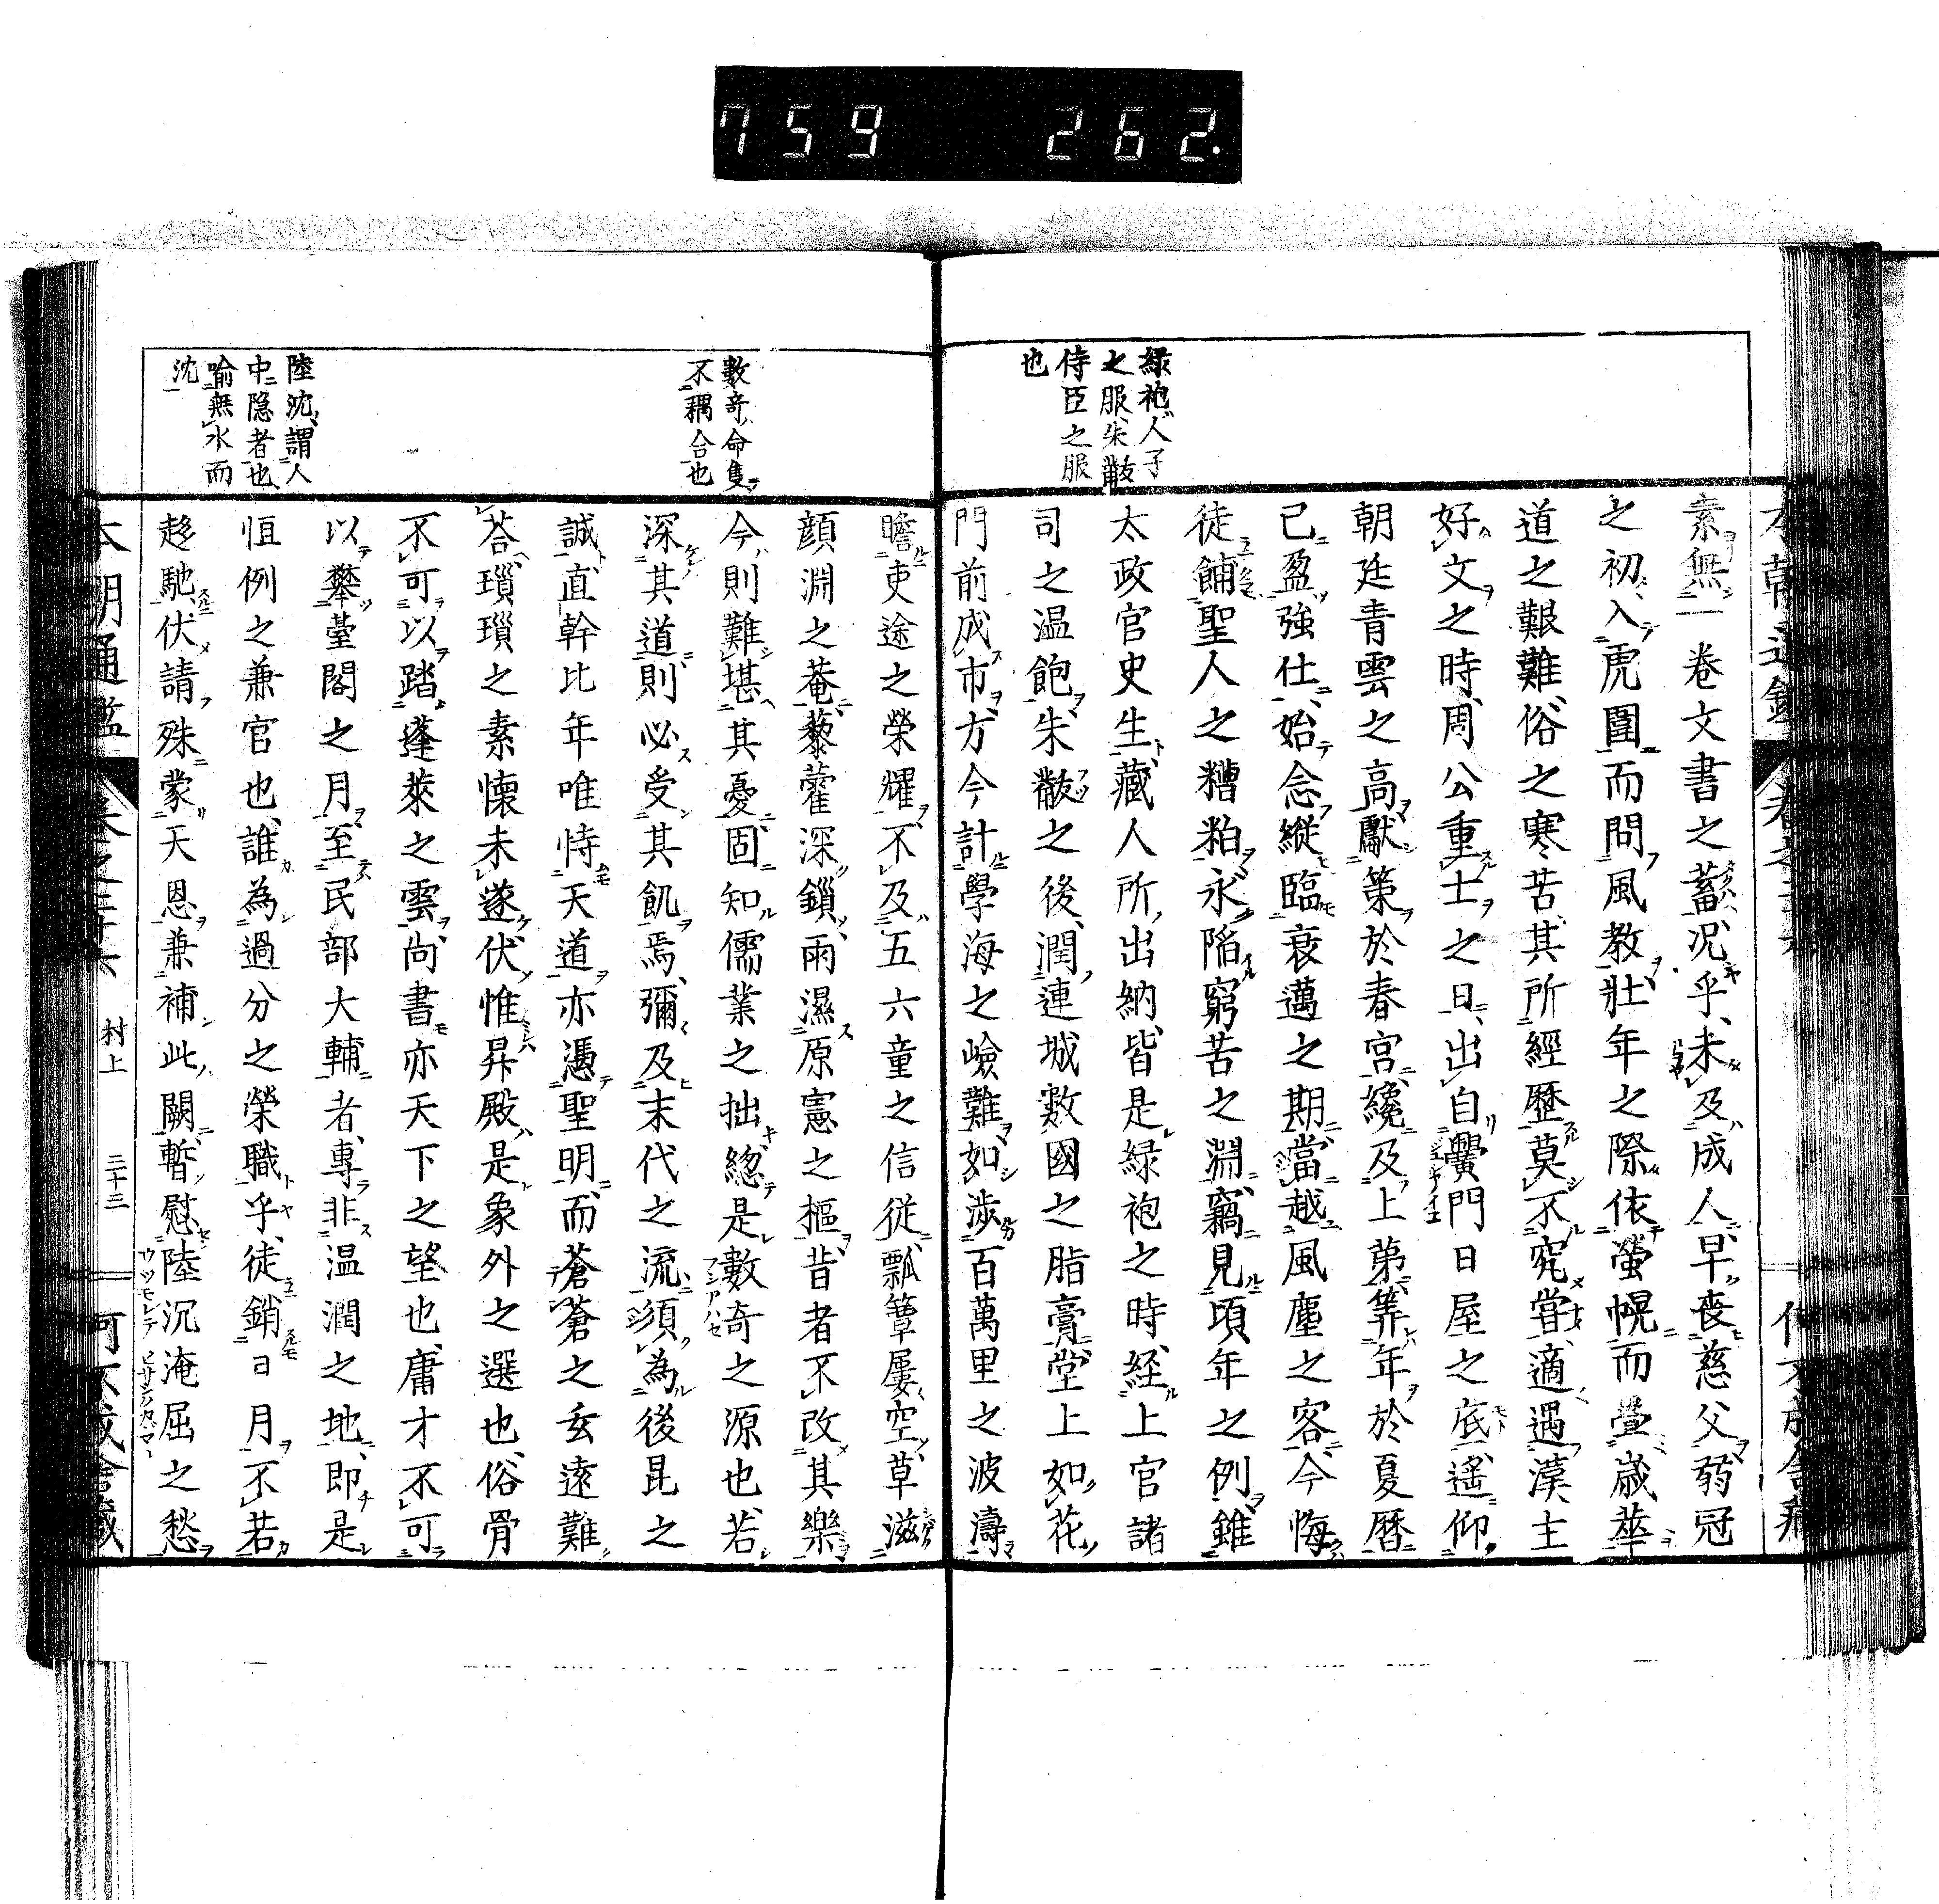 759 262.
緑袍、人子
之服、朱黻
侍臣之服
也
素無一卷文書之蓄、况乎、未及成人、早喪慈父、弱冠
之初、入虎圍而問風教、壯年之際、依螢幌而疊歳華
道之艱難、俗之寒苦、其所經歷、莫不究甞、適遇漢主
好文之時、周公重士之日、出自黌門日屋之底、遙仰
朝廷青雲之高、獻策於春宮、纔及上第、筭年於夏曆
已盈強仕、始念縱臨衰邁之期、當越風塵之客、今悔
徒餔聖人之糟粕、永陷窮苦之淵、竊見頃年之例、雖
太政官史生、藏人所出納、皆是緑袍之時、経上官諸
司之温飽、朱黻之後、潤連城數國之脂膏、堂上如花
門前成市、方今計學海之嶮難、如渉百萬里之波濤
數奇、命隻
不耦合也
陸沈、謂人
中隐者也、
喻無水而
沈
瞻吏途之榮耀、不及五六童之信従、瓢簞屢空、草滋
顔淵之菴、藜藿深鎻、雨濕原憲之樞、昔者不改其樂
今則難堪其憂、固知儒業之拙、總是數奇之源也、若
深其道、則必受其飢焉、彌及末代之流、須為後昆之
誠、直幹比年唯恃天道、亦憑聖明、而蒼蒼之玄遠難
荅、瑣瑣之素懐未遂、伏惟昇殿、是象外之選也、俗骨
不可以踏蓬萊之雲、尚書亦天下之望也、庸才不可
以攀臺閣之月、至民部大輔者、專非温潤之地、即是
恒例之兼官也、誰為過分之榮職乎、徒銷日月、不若
趍馳、伏請殊蒙天恩、兼補此闕、暫慰陸沉淹屈之愁
本朝通鑑 卷之二十六 村上 三十三